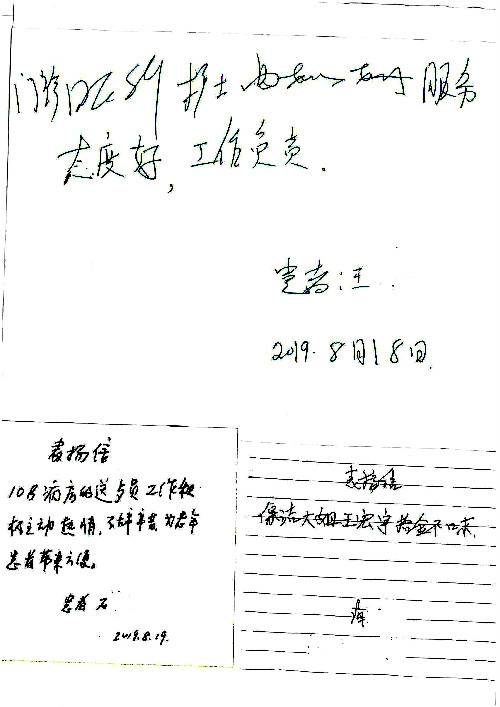 门诊 护士 服务
态度好，工作负责．
患者：王
2019．8月18日
表扬信
108病房的送与员工作积
极主动热情，不辞辛苦为老年
患者带来方便。
患者 石
2019.8.19.
表扬信
保洁大姐王宏宇拾金不昧